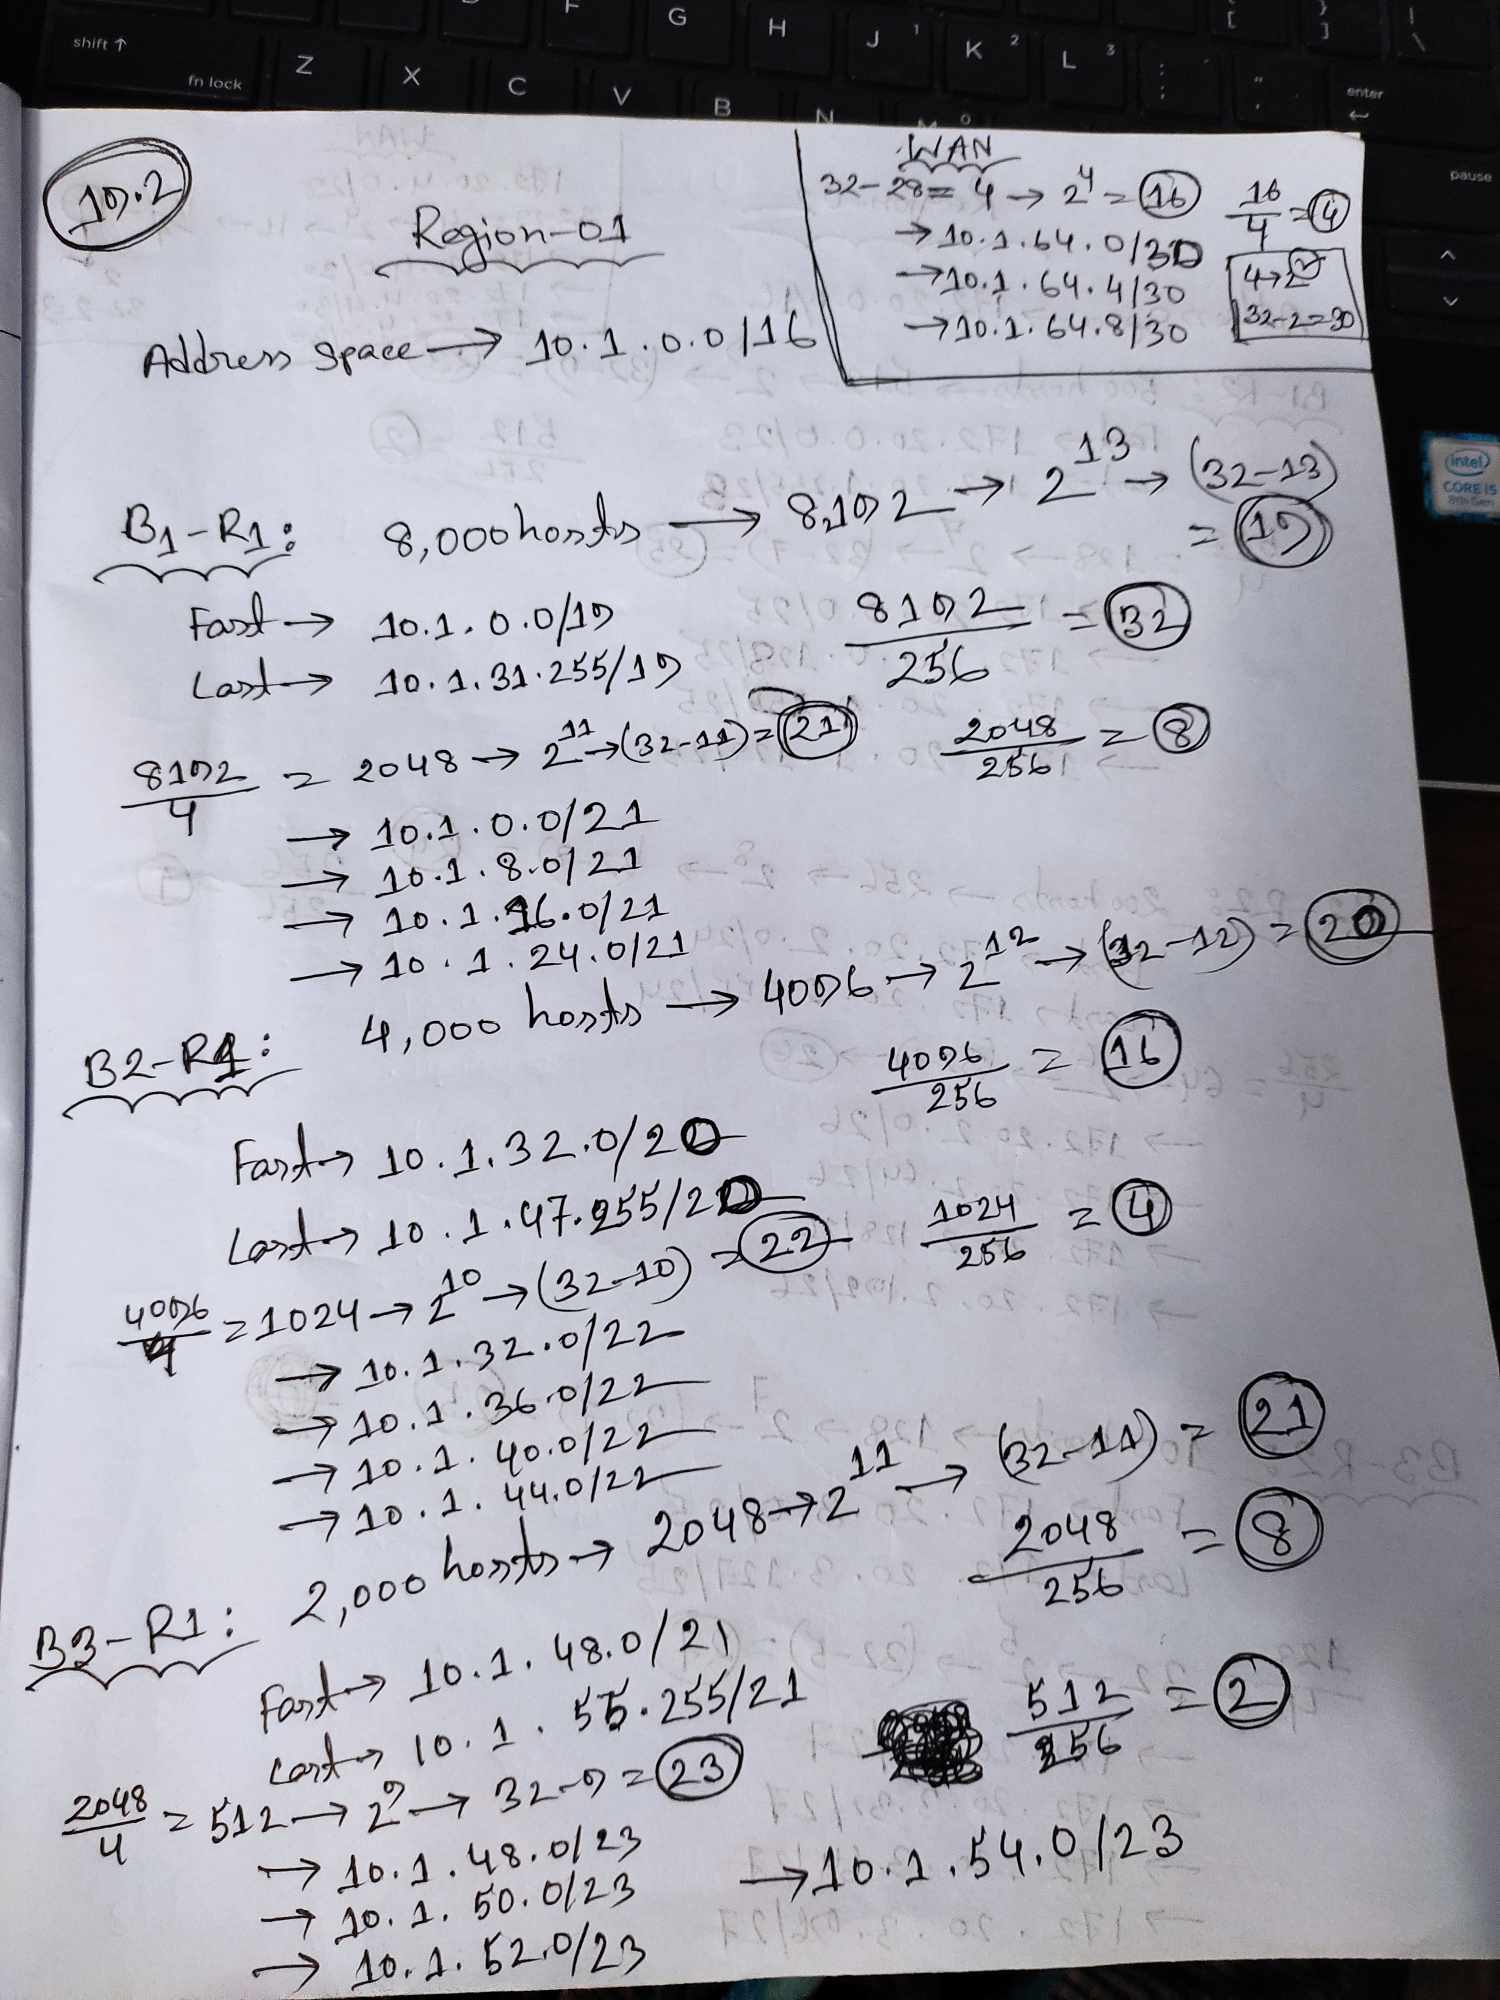 shift ↑
fn lock
F
G
H
J 1
K 2
L 3
Z
X
C
V
B
N
enter
pause
intel
CORE i5
8th Gen
19.2
Region-01
Address Space → 10.1.0.0/16
WAN
32-28 = 4 → 2^4 = 16
16/4 = 4
→ 10.1.64.0/30
→ 10.1.64.4/30
→ 10.1.64.8/30
4→2^2
32-2=30
B1-R1: 8,000 hosts → 8192 → 2^13 → (32-13)
= 19
Fast → 10.1.0.0/19
8192/256 = 32
Last → 10.1.31.255/19
8192/4 = 2048 → 2^11 → (32-11) = 21
2048/256 = 8
→ 10.1.0.0/21
→ 10.1.8.0/21
→ 10.1.16.0/21
→ 10.1.24.0/21
B2-R1: 4,000 hosts → 4096 → 2^12 → (32-12) = 20
4096/256 = 16
Fast → 10.1.32.0/20
Last → 10.1.47.255/20
1024/256 = 4
4096/4 = 1024 → 2^10 → (32-10) = 22
→ 10.1.32.0/22
→ 10.1.36.0/22
→ 10.1.40.0/22
→ 10.1.44.0/22
B3-R1: 2,000 hosts → 2048 → 2^11 → (32-11) = 21
2048/256 = 8
Fast → 10.1.48.0/21
Last → 10.1.55.255/21
512/256 = 2
2048/4 = 512 → 2^9 → 32-9 = 23
→ 10.1.48.0/23
→ 10.1.50.0/23
→ 10.1.52.0/23
→ 10.1.54.0/23